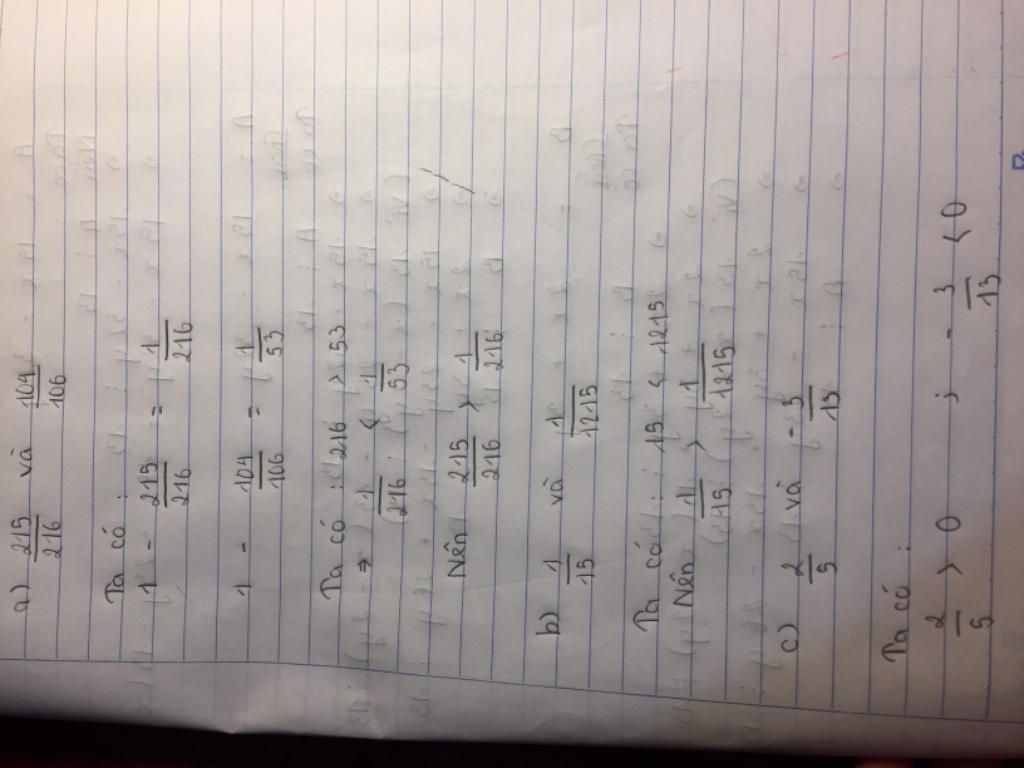 a) 215/216 và 104/106
Ta có :
1 - 215/216 = 1/216
1 - 104/106 = 1/53
Ta có : 216 > 53
⇒ 1/216 < 1/53
Nên 215/216 > 1/216
b) 1/15 và 1/1215
Ta có : 15 < 1215
Nên 1/15 > 1/1215
c) 2/5 và -3/13
Ta có :
2/5 > 0 ; -3/13 < 0